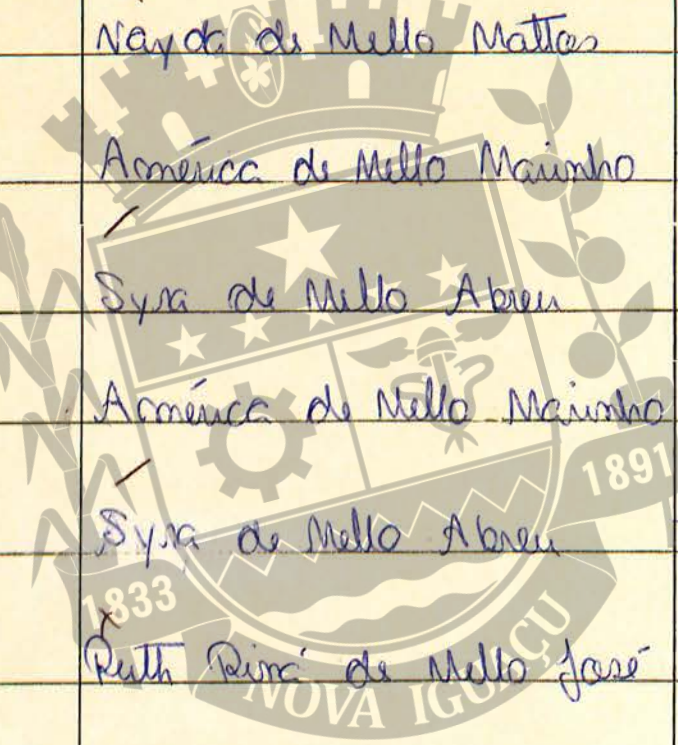 Nayda de Mello Mattos
América de Mello Marinho
Syra de Mello Abreu
América de Mello Marinho
1891
Syra de Mello Abreu
1833
Ruth de Mello José
NOVA IGUAÇU